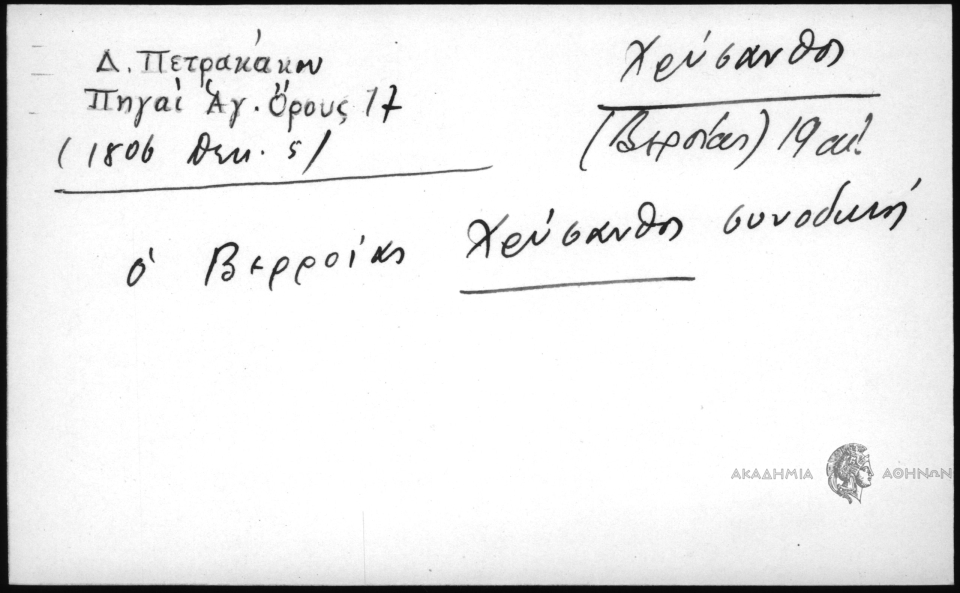 Δ. Πετρακάκου
Πηγαί Ἁγ. Ὄρους 17
(1806 Δεκ. 5)
Χρύσανθος
(Βεροίας) 19 αἰ.
ὁ Βερροίας Χρύσανθος συνοδικῇ
ΑΚΑΔΗΜΙΑ ΑΘΗΝΩΝ